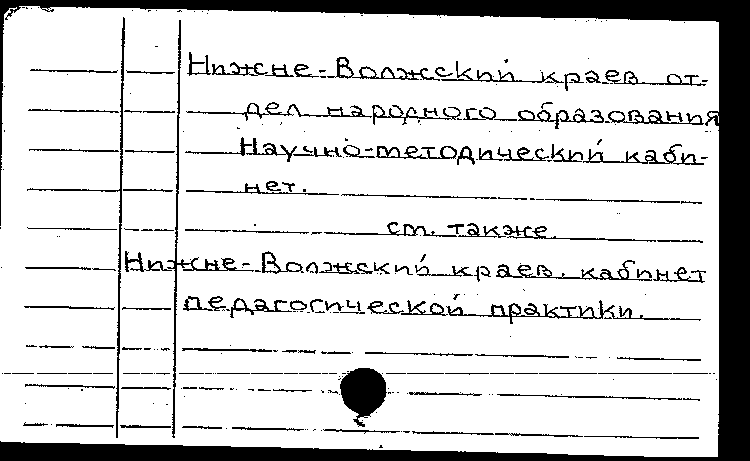 Нижне-Волжский краев. от-
дел народного образования
Научно-методический каби-
нет.
см. также
Нижне-Волжский краев. кабинет
педагогической практики.